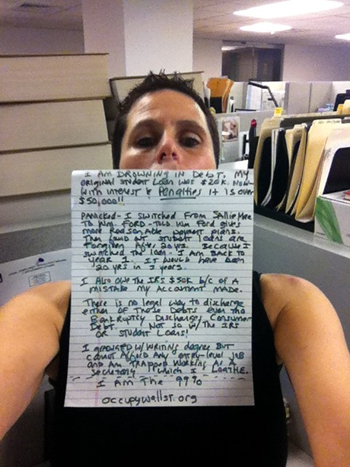 I AM DROWNING IN DEBT. MY
ORIGINAL STUDENT LOAN WAS $20K. NOW
WITH INTEREST & PENALTIES IT IS OVER
$50,000!!
PANICKED - I SWITCHED FROM SALLIE MAE
TO WM. FORD - TOLD WM FORD GIVES
MORE REASONABLE PAYMENT PLANS &
THAN FORD STUDENT LOANS ARE
FORGIVEN AFTER 20 YRS. BECAUSE I
SWITCHED THE LOAN - I AM BACK TO
YEAR 1. IT WOULD HAVE BEEN
20 YRS IN 2 YEARS.
I ALSO OWE THE IRS $50K B/C OF A
MISTAKE MY ACCOUNTANT MADE.
THERE IS NO LEGAL WAY TO DISCHARGE
EITHER OF THESE DEBTS EVEN THO
BANKRUPTCY DISCHARGES CONSUMER
DEBT / NOT SO W/ THE IRS
OR STUDENT LOANS!
I GRADUATED W/ WRITING DEGREE BUT
CANNOT AFFORD ANY ENTRY-LEVEL JOB
AND AM TRAPPED WORKING AS A
SECRETARY WHICH I LOATHE.
I AM THE 99%
OCCUPYWALLST.ORG